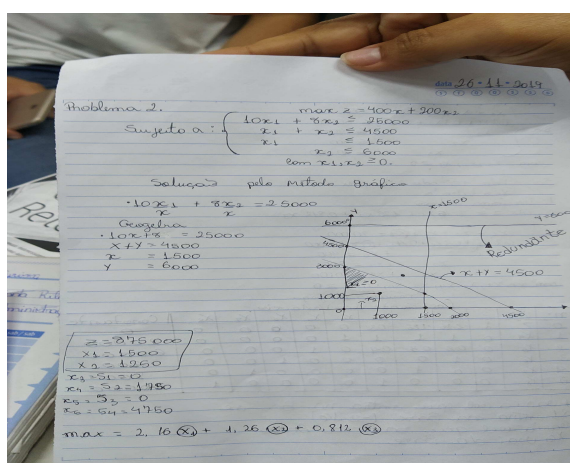 26 - 11 - 2019
Problema 2.
max z = 400x + 200x2
Sujeito a:
10x1 + 8x2 ≤ 25000
x1 + x2 ≤ 4500
x1 ≤ 1500
x2 ≤ 6000
com x1, x2 ≥ 0.
Solução pelo método gráfico
• 10x1 + 8x2 = 25000
x x
Geogebra
• 10x+8 = 25000
X + Y = 4500
x = 1500
Y = 6000
Y
x=1500
6000
4500
Redundante
x + y = 4500
1000
0
1000
1500
2000
4500
z = 875000
x1 = 1500
x2 = 1250
x3 = S1 = 0
x4 = S2 = 1750
x5 = S3 = 0
x6 = S4 = 4750
max = 2,16 x1 + 1,26 x2 + 0,812 x3